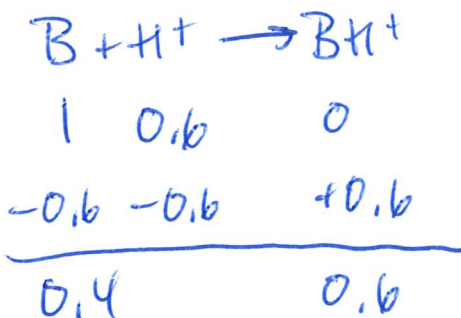 B + H+ → BH+
1 0.6 0
-0.6 -0.6 +0.6
0.4 0.6